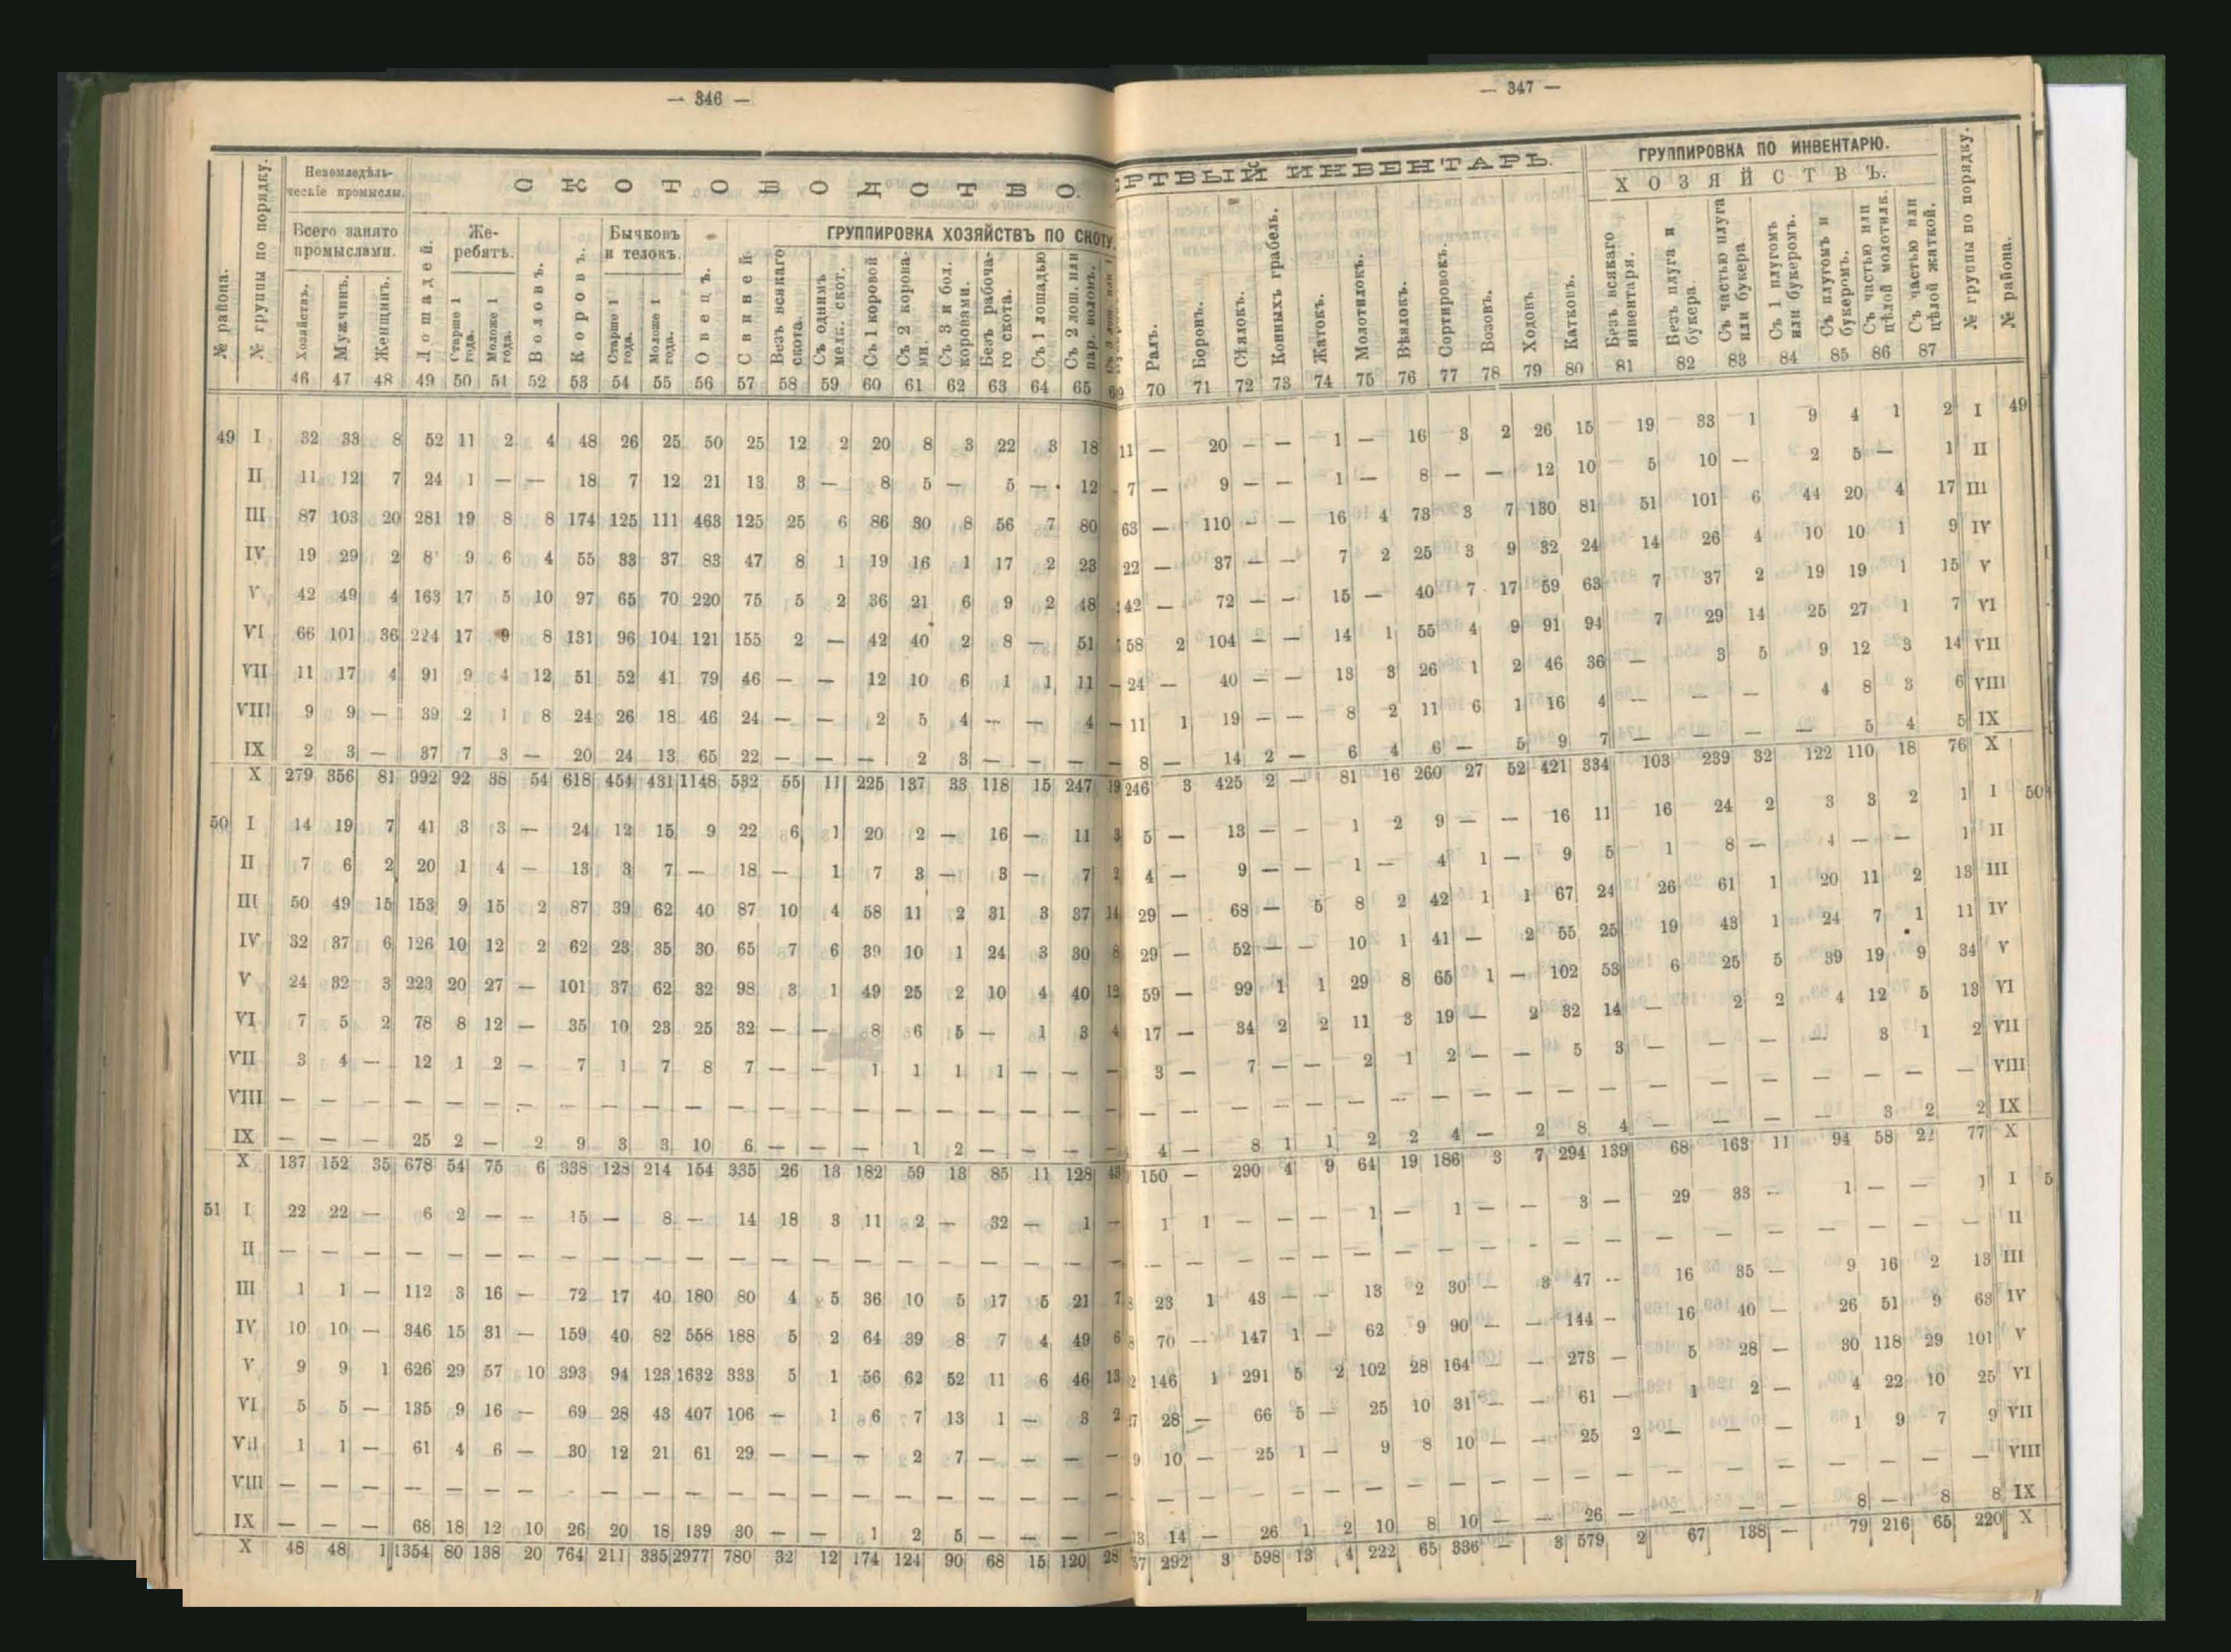 — 346 —
№ района.
№ группы по порядку.
Неземледѣль-
ческіе промыслы.
СКОТОВОДСТВО.
Всего занято
промыслами.
Лошадей.
Же-
ребятъ.
Воловъ.
Коровъ.
Бычковъ
и телокъ.
Овецъ.
Свиней.
ГРУППИРОВКА ХОЗЯЙСТВЪ ПО СКОТУ.
Хозяйствъ.
Мужчинъ.
Женщинъ.
Старше 1
года.
Моложе 1
года.
Старше 1
года.
Моложе 1
года.
Безъ всякаго
скота.
Съ однимъ
мелк. скот.
Съ 1 коровой
Съ 2 корова-
ми.
Съ 3 и бол.
коровами.
Безъ рабоча-
го скота.
Съ 1 лошадью
Съ 2 лош. или
пар. воловъ.
46 47 48 49 50 51 52 53 54 55 56 57 58 59 60 61 62 63 64 65
49 I 32 33 8 52 11 2 4 48 26 25 50 25 12 2 20 8 3 22 3 18
II 11 12 7 24 1 — — 18 7 12 21 13 3 — 8 5 — 5 — 12
III 87 103 20 281 19 8 8 174 125 111 463 125 25 6 86 30 8 56 7 80
IV 19 29 2 8 9 6 4 55 33 37 83 47 8 1 19 16 1 17 2 23
V 42 49 4 163 17 5 10 97 65 70 220 75 5 2 36 21 6 9 2 48
VI 66 101 36 224 17 9 8 131 96 104 121 155 2 — 42 40 2 8 — 51
VII 11 17 4 91 9 4 12 51 52 41 79 46 — — 12 10 6 1 1 11 —
VIII 9 9 — 39 2 1 8 24 26 18 46 24 — — 2 5 4 — — 4 —
IX 2 3 — 37 7 3 — 20 24 13 65 22 — — — 2 3 — — — —
X 279 356 81 992 92 38 54 618 454 431 1148 532 55 11 225 137 33 118 15 247 19
50 I 14 19 7 41 3 3 — 24 12 15 9 22 6 1 20 2 — 16 — 11 3
II 7 6 2 20 1 4 — 13 3 7 — 18 — 1 7 3 — 3 — 7 2
III 50 49 15 153 9 15 2 87 39 62 40 87 10 4 58 11 2 31 3 37 14
IV 32 37 6 126 10 12 2 62 23 35 30 65 7 6 39 10 1 24 3 30 8
V 24 32 3 223 20 27 — 101 37 62 32 98 3 1 49 25 2 10 4 40 12
VI 7 5 2 78 8 12 — 35 10 23 25 32 — — 8 6 5 — 1 3 4
VII 3 4 — 12 1 2 — 7 1 7 8 7 — — 1 1 1 1 — — —
VIII — — — — — — — — — — — — — — — — — — — — —
IX — — — 25 2 — 2 9 3 3 10 6 — — — 1 2 — — — —
X 137 152 35 678 54 75 6 338 128 214 154 335 26 13 182 59 13 85 11 128 43
51 I 22 22 — 6 2 — — 15 — 8 — 14 18 3 11 2 — 32 — 1 —
II — — — — — — — — — — — — — — — — — — — — —
III 1 1 — 112 3 16 — 72 17 40 180 80 4 5 36 10 5 17 5 21 7
IV 10 10 — 346 15 31 — 159 40 82 558 188 5 2 64 39 8 7 4 49 6
V 9 9 1 626 29 57 10 393 94 123 1632 333 5 1 56 62 52 11 6 46 13
VI 5 5 — 135 9 16 — 69 28 43 407 106 — 1 6 7 13 1 — 3 2
VII 1 1 — 61 4 6 — 30 12 21 61 29 — — — 2 7 — — — —
VIII — — — — — — — — — — — — — — — — — — — — —
IX — — — 68 18 12 10 26 20 18 139 30 — — 1 2 5 — — — —
X 48 48 1 1354 80 138 20 764 211 335 2977 780 32 12 174 124 90 68 15 120 28
— 347 —
РТВЫЙ ИНВЕНТАРЬ.
ГРУППИРОВКА ПО ИНВЕНТАРЮ.
ХОЗЯЙСТВЪ.
Ралъ.
Боронъ.
Сѣялокъ.
Конныхъ грабель.
Жатокъ.
Молотилокъ.
Вѣялокъ.
Сортировокъ.
Возовъ.
Ходовъ
Катковъ.
Безъ всякаго
инвентаря.
Безъ плуга и
букера.
Съ частью плуга
или букера.
Съ 1 плугомъ
или букеромъ.
Съ плугомъ и
букеромъ.
Съ частью или
цѣлой молотилк.
Съ частью или
цѣлой жаткой.
№ группы по порядку.
№ района.
70 71 72 73 74 75 76 77 78 79 80 81 82 83 84 85 86 87
11 — 20 — — 1 — 16 3 2 26 15 19 33 1 9 4 1 2 I 49
7 — 9 — — 1 — 8 — — 12 10 5 10 — 2 5 — 1 II
63 — 110 — — 16 4 73 3 7 130 81 51 101 6 44 20 4 17 III
22 — 37 — — 7 2 25 3 9 32 24 14 26 4 10 10 1 9 IV
42 — 72 — — 15 — 40 7 17 59 63 7 37 2 19 19 1 15 V
58 2 104 — — 14 1 55 4 9 91 94 7 29 14 25 27 1 7 VI
24 — 40 — — 13 3 26 1 2 46 36 — 3 5 9 12 3 14 VII
11 1 19 — — 8 2 11 6 1 16 4 — — — 4 8 3 6 VIII
8 — 14 2 — 6 4 6 — 5 9 7 — — — — 5 4 5 IX
246 3 425 2 — 81 16 260 27 52 421 334 103 239 32 122 110 18 76 X
5 — 13 — — 1 2 9 — — 16 11 16 24 2 3 3 2 1 I 50
4 — 9 — — 1 — 4 1 — 9 5 1 8 — 4 — — 1 II
29 — 68 — 5 8 2 42 1 1 67 24 26 61 1 20 11 2 13 III
29 — 52 — — 10 1 41 — 2 55 25 19 43 1 24 7 1 11 IV
59 — 99 1 1 29 8 65 1 — 102 53 6 25 5 39 19 9 34 V
17 — 34 2 2 11 3 19 — 2 32 14 — 2 2 4 12 5 13 VI
3 — 7 — — 2 1 2 — — 5 3 — — — — 3 1 2 VII
— — — — — — — — — — — — — — — — — — — VIII
4 — 8 1 1 2 2 4 — 2 8 4 — — — — 3 2 2 IX
150 — 290 4 9 64 19 186 3 7 294 139 68 163 11 94 58 22 77 X
1 1 — — — 1 — 1 — — 3 — 29 33 — 1 — — 1 I 5
— — — — — — — — — — — — — — — — — — — II
23 1 43 — — 13 2 30 — 3 47 — 16 35 — 9 16 2 13 III
70 — 147 1 — 62 9 90 — — 144 — 16 40 — 26 51 9 63 IV
146 1 291 5 2 102 28 164 — — 273 — 5 28 — 30 118 29 101 V
28 — 66 5 — 25 10 31 — — 61 — 1 2 — 4 22 10 25 VI
10 — 25 1 — 9 8 10 — — 25 2 — — — 1 9 7 9 VII
— — — — — — — — — — — — — — — — — — — VIII
14 — 26 1 2 10 8 10 — — 26 — — — 8 — 8 8 IX
292 3 598 13 4 222 65 336 — 3 579 2 67 138 — 79 216 65 220 X